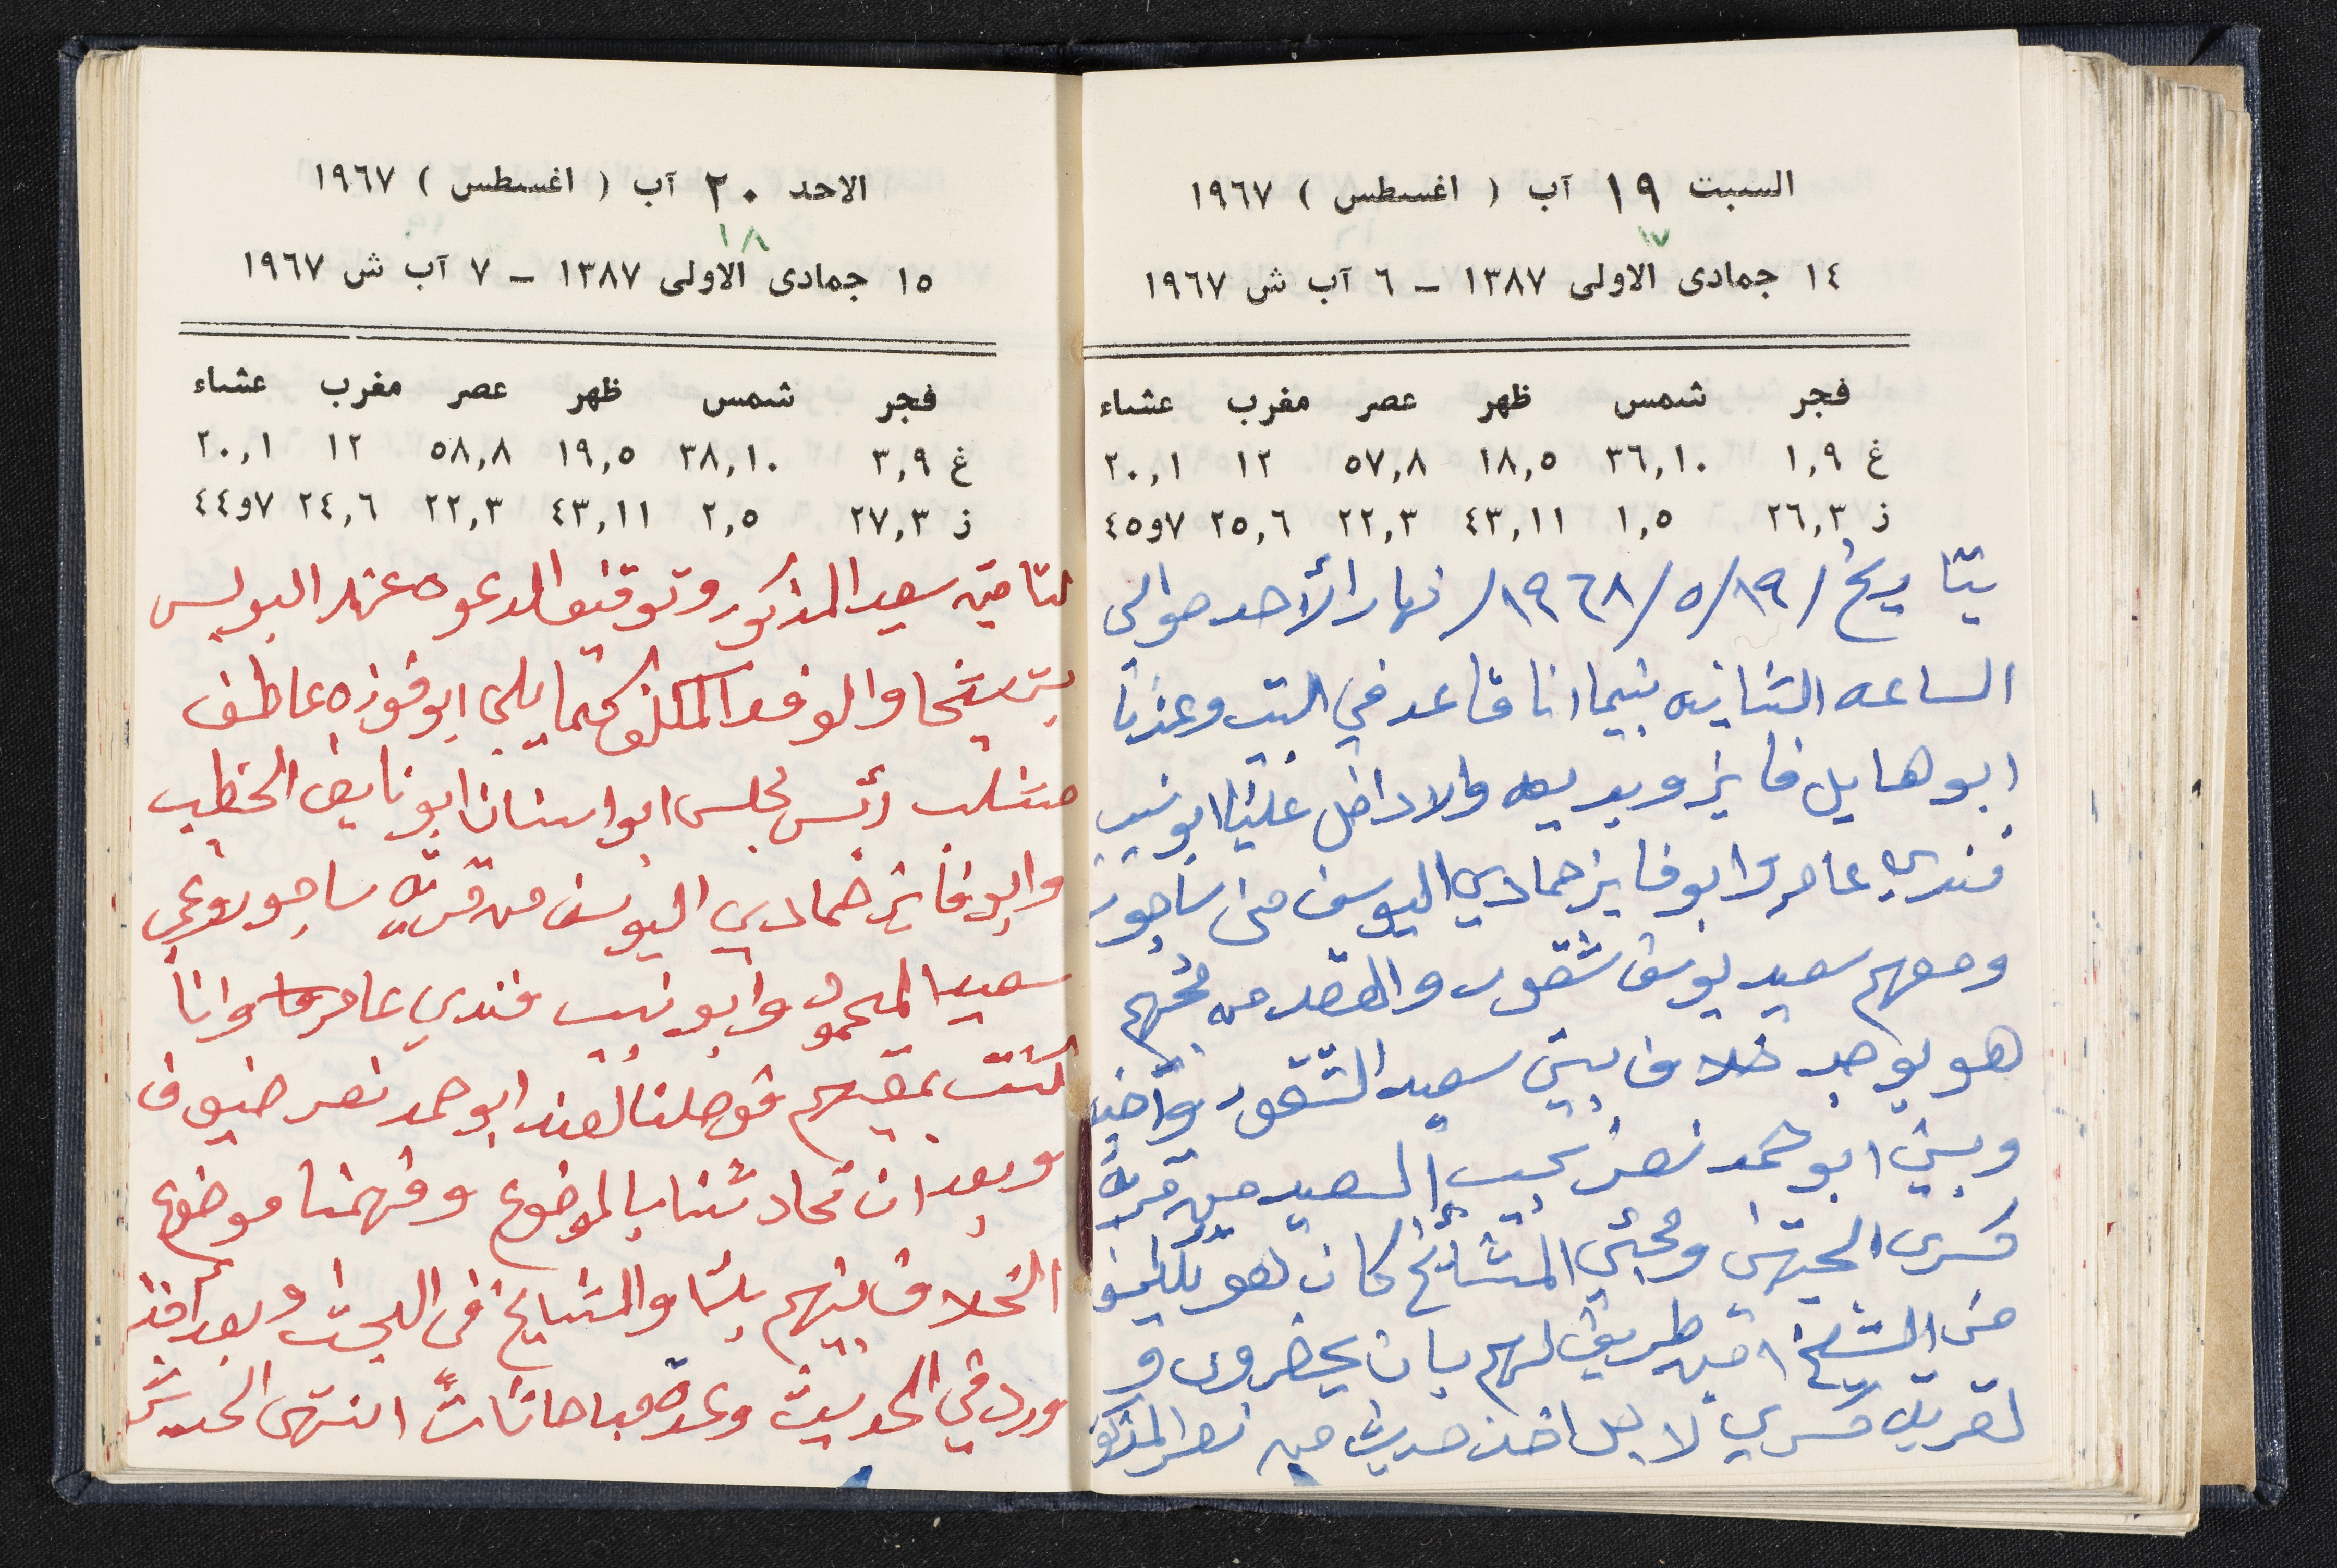 السبت ١٩ آب ( اغسطس ) ١٩٦٧
١٧
١٤ جمادى الاولى ١٣٨٧ – ٦ آب ش ١٩٦٧
فجر شمس ظهر عصر مغرب عشاء
غ ١,٩ ٣٦,١٠ ١٨,٥ ٥٧,٨ ١٢ ٢٠,١
ز ٢٦,٣ ١,٥ ٤٣,١١ ٢٢,٣ ٢٥,٦ ٧و٤٥
بتاريخ /١٩/٥/١٩٦٨/ نهار الأحد حوالي
الساعه الثانيه بينما انا قاعد في البيت وعندنا
ابو هايل فايز وبديعه والا داخل علينا ابو نسيب
فندي عامر وابو فايز حمادي اليوسف من ساجور
ومعهم سعيد يوسف شقور والقصد من
هو يوجد خلاف بين سعيد الشقور واخيه
وبين ابو حمد نصر نجيب السعيد من قرية
كسرى الجيهتين ومجئي المشائخ كان هو
من الشيخ امين طريف لهم بان يحضروا و
لقرية كسرى لاجل اخذ حديث من نصر المذكور
الاحد ٢٠ آب ( اغسطس ) ١٩٦٧
١٨
١٥ جمادى الاولى ١٣٨٧ – ٧ آب ش ١٩٦٧
فجر شمس ظهر عصر مغرب عشاء
غ ٣,٩ ٣٨,١٠ ١٩,٥ ٥٨,٨ ١٢ ٢٠,١
ز ٢٧,٣ ٢,٥ ٤٣,١١ ٢٢,٣ ٢٤,٦ ٧و٤٤
سعيد المذكور وتوقيف الدعوه عند البوليس
والوفد المكلف كما يلي ابو فوزه عاطف
رئس مجلس ابو اسنان ابو نايف الخطيب
وابو فايز حمادي اليوسف من قرية ساجور وعمي
سعيد المحمود وابو نسيب فندي عامر وانا
كنت بمعيتهم فوصلنا لعند ابو حمد نصر ضيوف
وبعد ان تحادثنا بالموضوع وفهمنا موضوع
الخلاف بينهم والمشايخ في البحث وبعد اخذ
ورد في الحديث وعدة مباحاثات انتهى الحديث